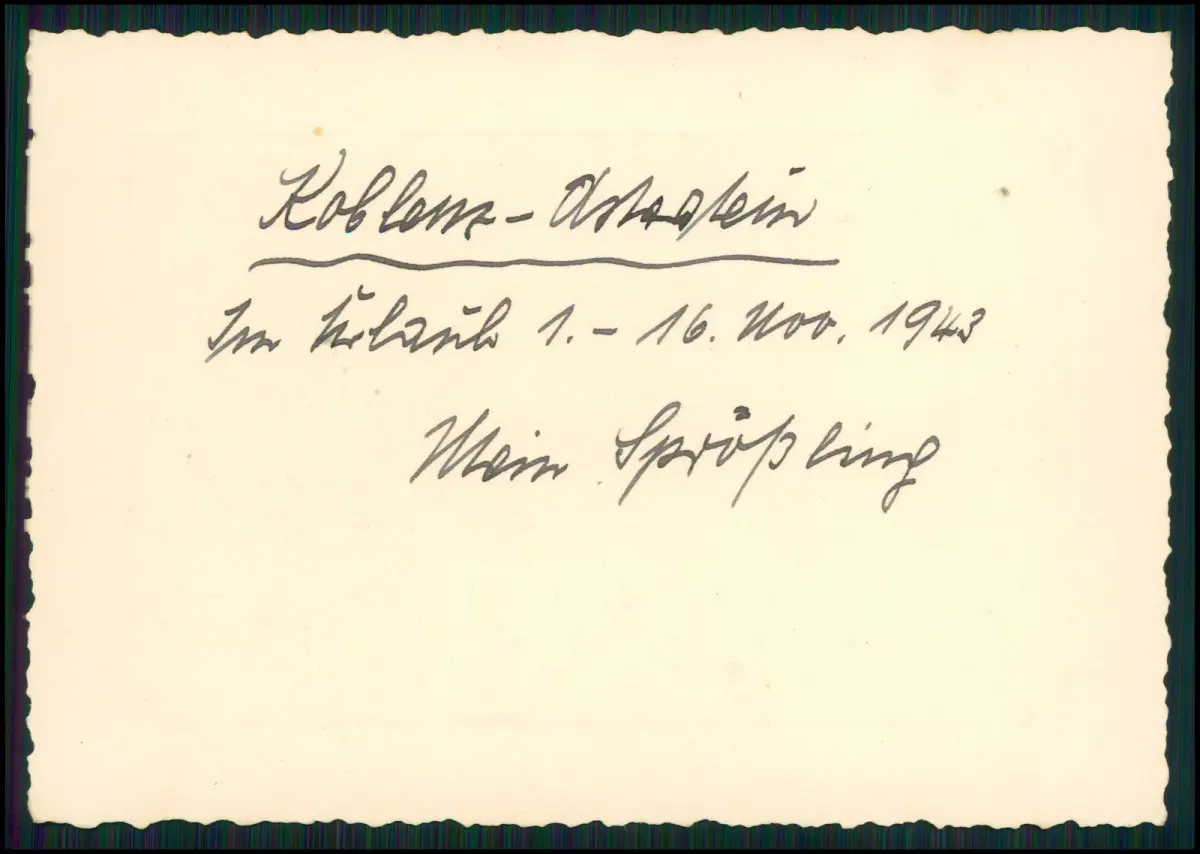 Koblenz - Asterstein
Im Urlaub 1. - 16. Nov. 1943
Mein Sprößling